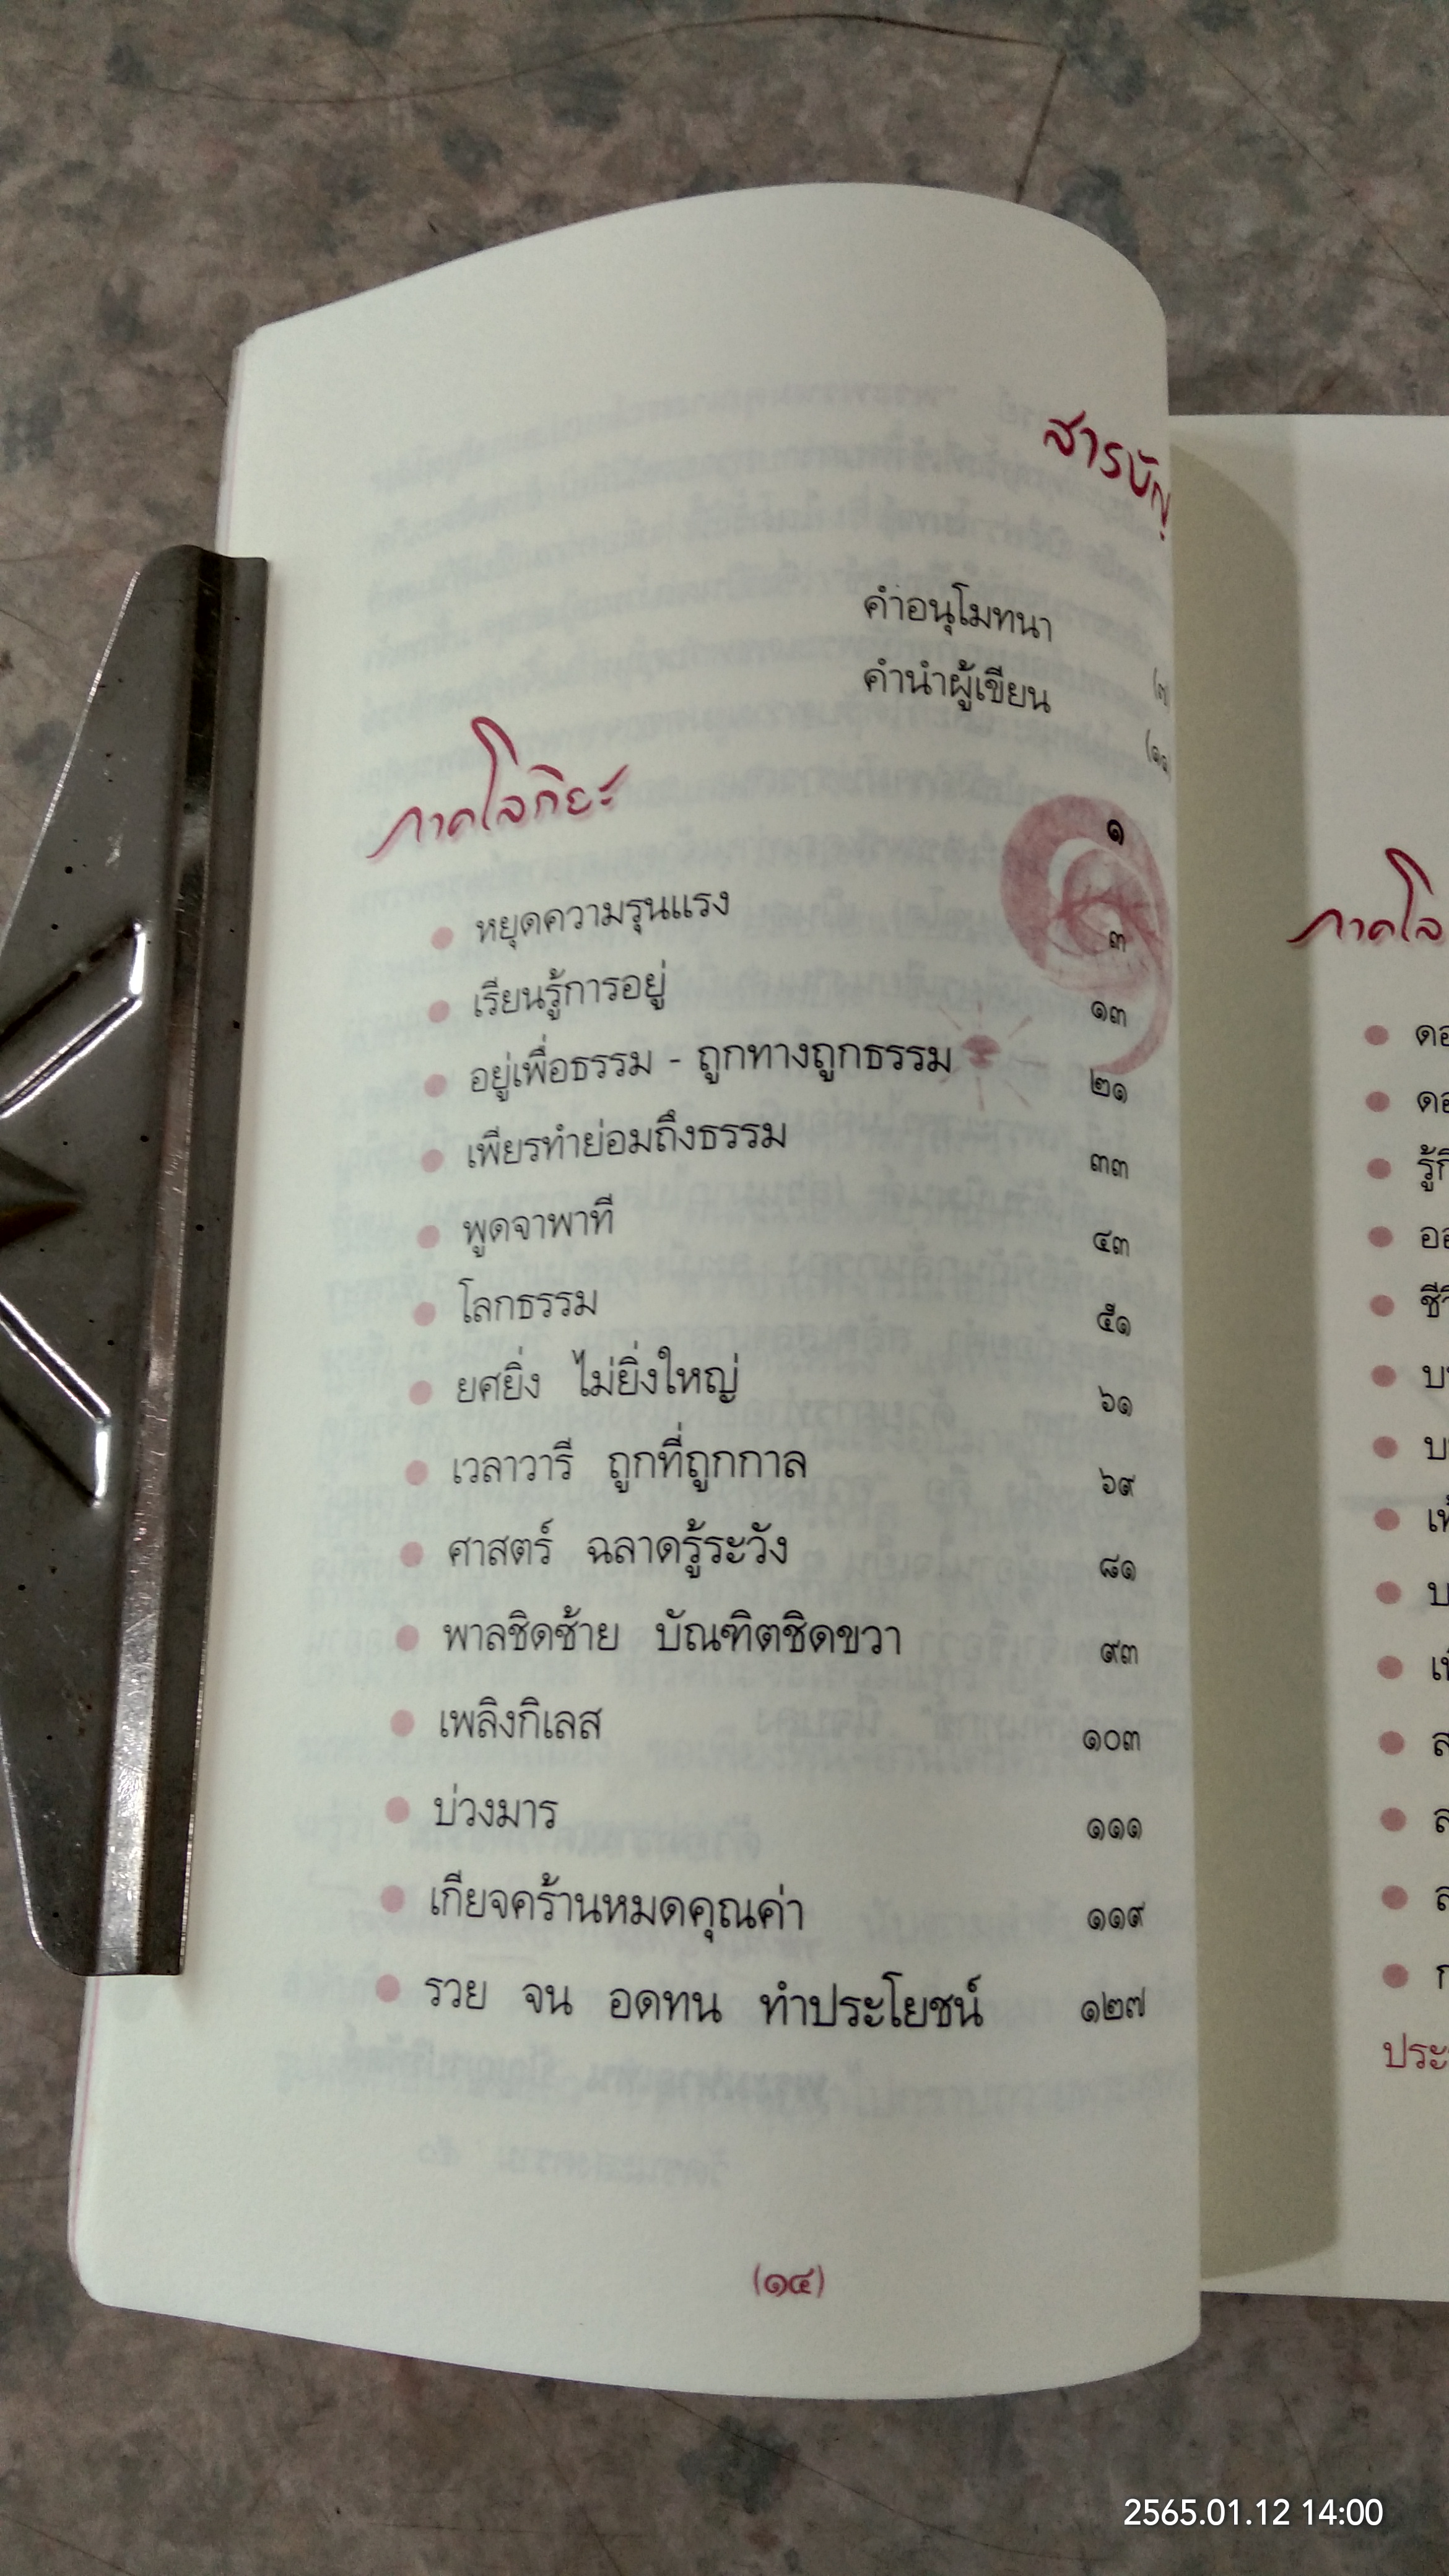 สารบัญ
คำอนุโมทนา
คำนำผู้เขียน
ภาคโลกิยะ ๑
หยุดความรุนแรง ๓
เรียนรู้การอยู่ ๑๓
อยู่เพื่อธรรม - ถูกทางถูกธรรม ๒๑
เพียรทำย่อมถึงธรรม ๓๓
พูดจาพาที ๔๓
โลกธรรม ๕๑
ยศยิ่ง ไม่ยิ่งใหญ่ ๖๑
เวลาวารี ถูกที่ถูกกาล ๖๙
ศาสตร์ ฉลาดรู้ระวัง ๘๑
พาลชิดซ้าย บัณฑิตชิดขวา ๙๓
เพลิงกิเลส ๑๐๓
บ่วงมาร ๑๑๑
เกียจคร้านหมดคุณค่า ๑๑๙
รวย จน อดทน ทำประโยชน์ ๑๒๗
(๑๔)
ภาคโล
ประ
2565.01.12 14:00